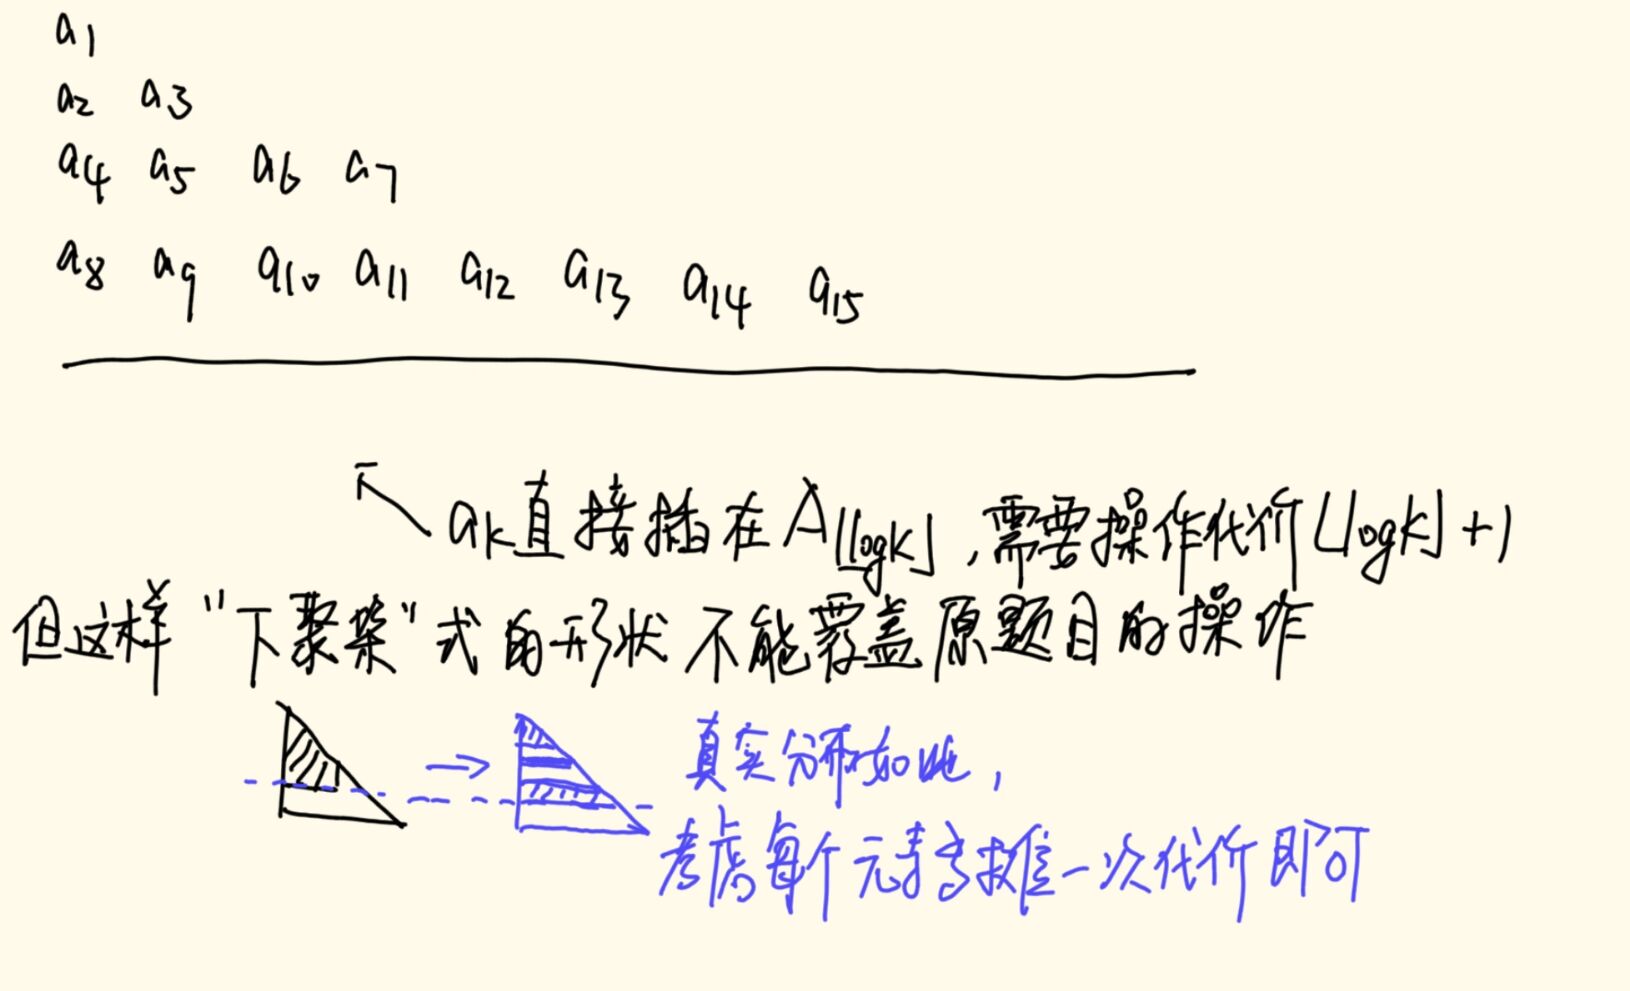 a1
a2 a3
a4 a5 a6 a7
a8 a9 a10 a11 a12 a13 a14 a15
ak直接插在A⌊logk⌋,需要操作代价⌊logk⌋+1
但这样"下聚集"式的形状不能覆盖原题目的操作
真实分布如此,
考虑每个元素多推一次代价即可